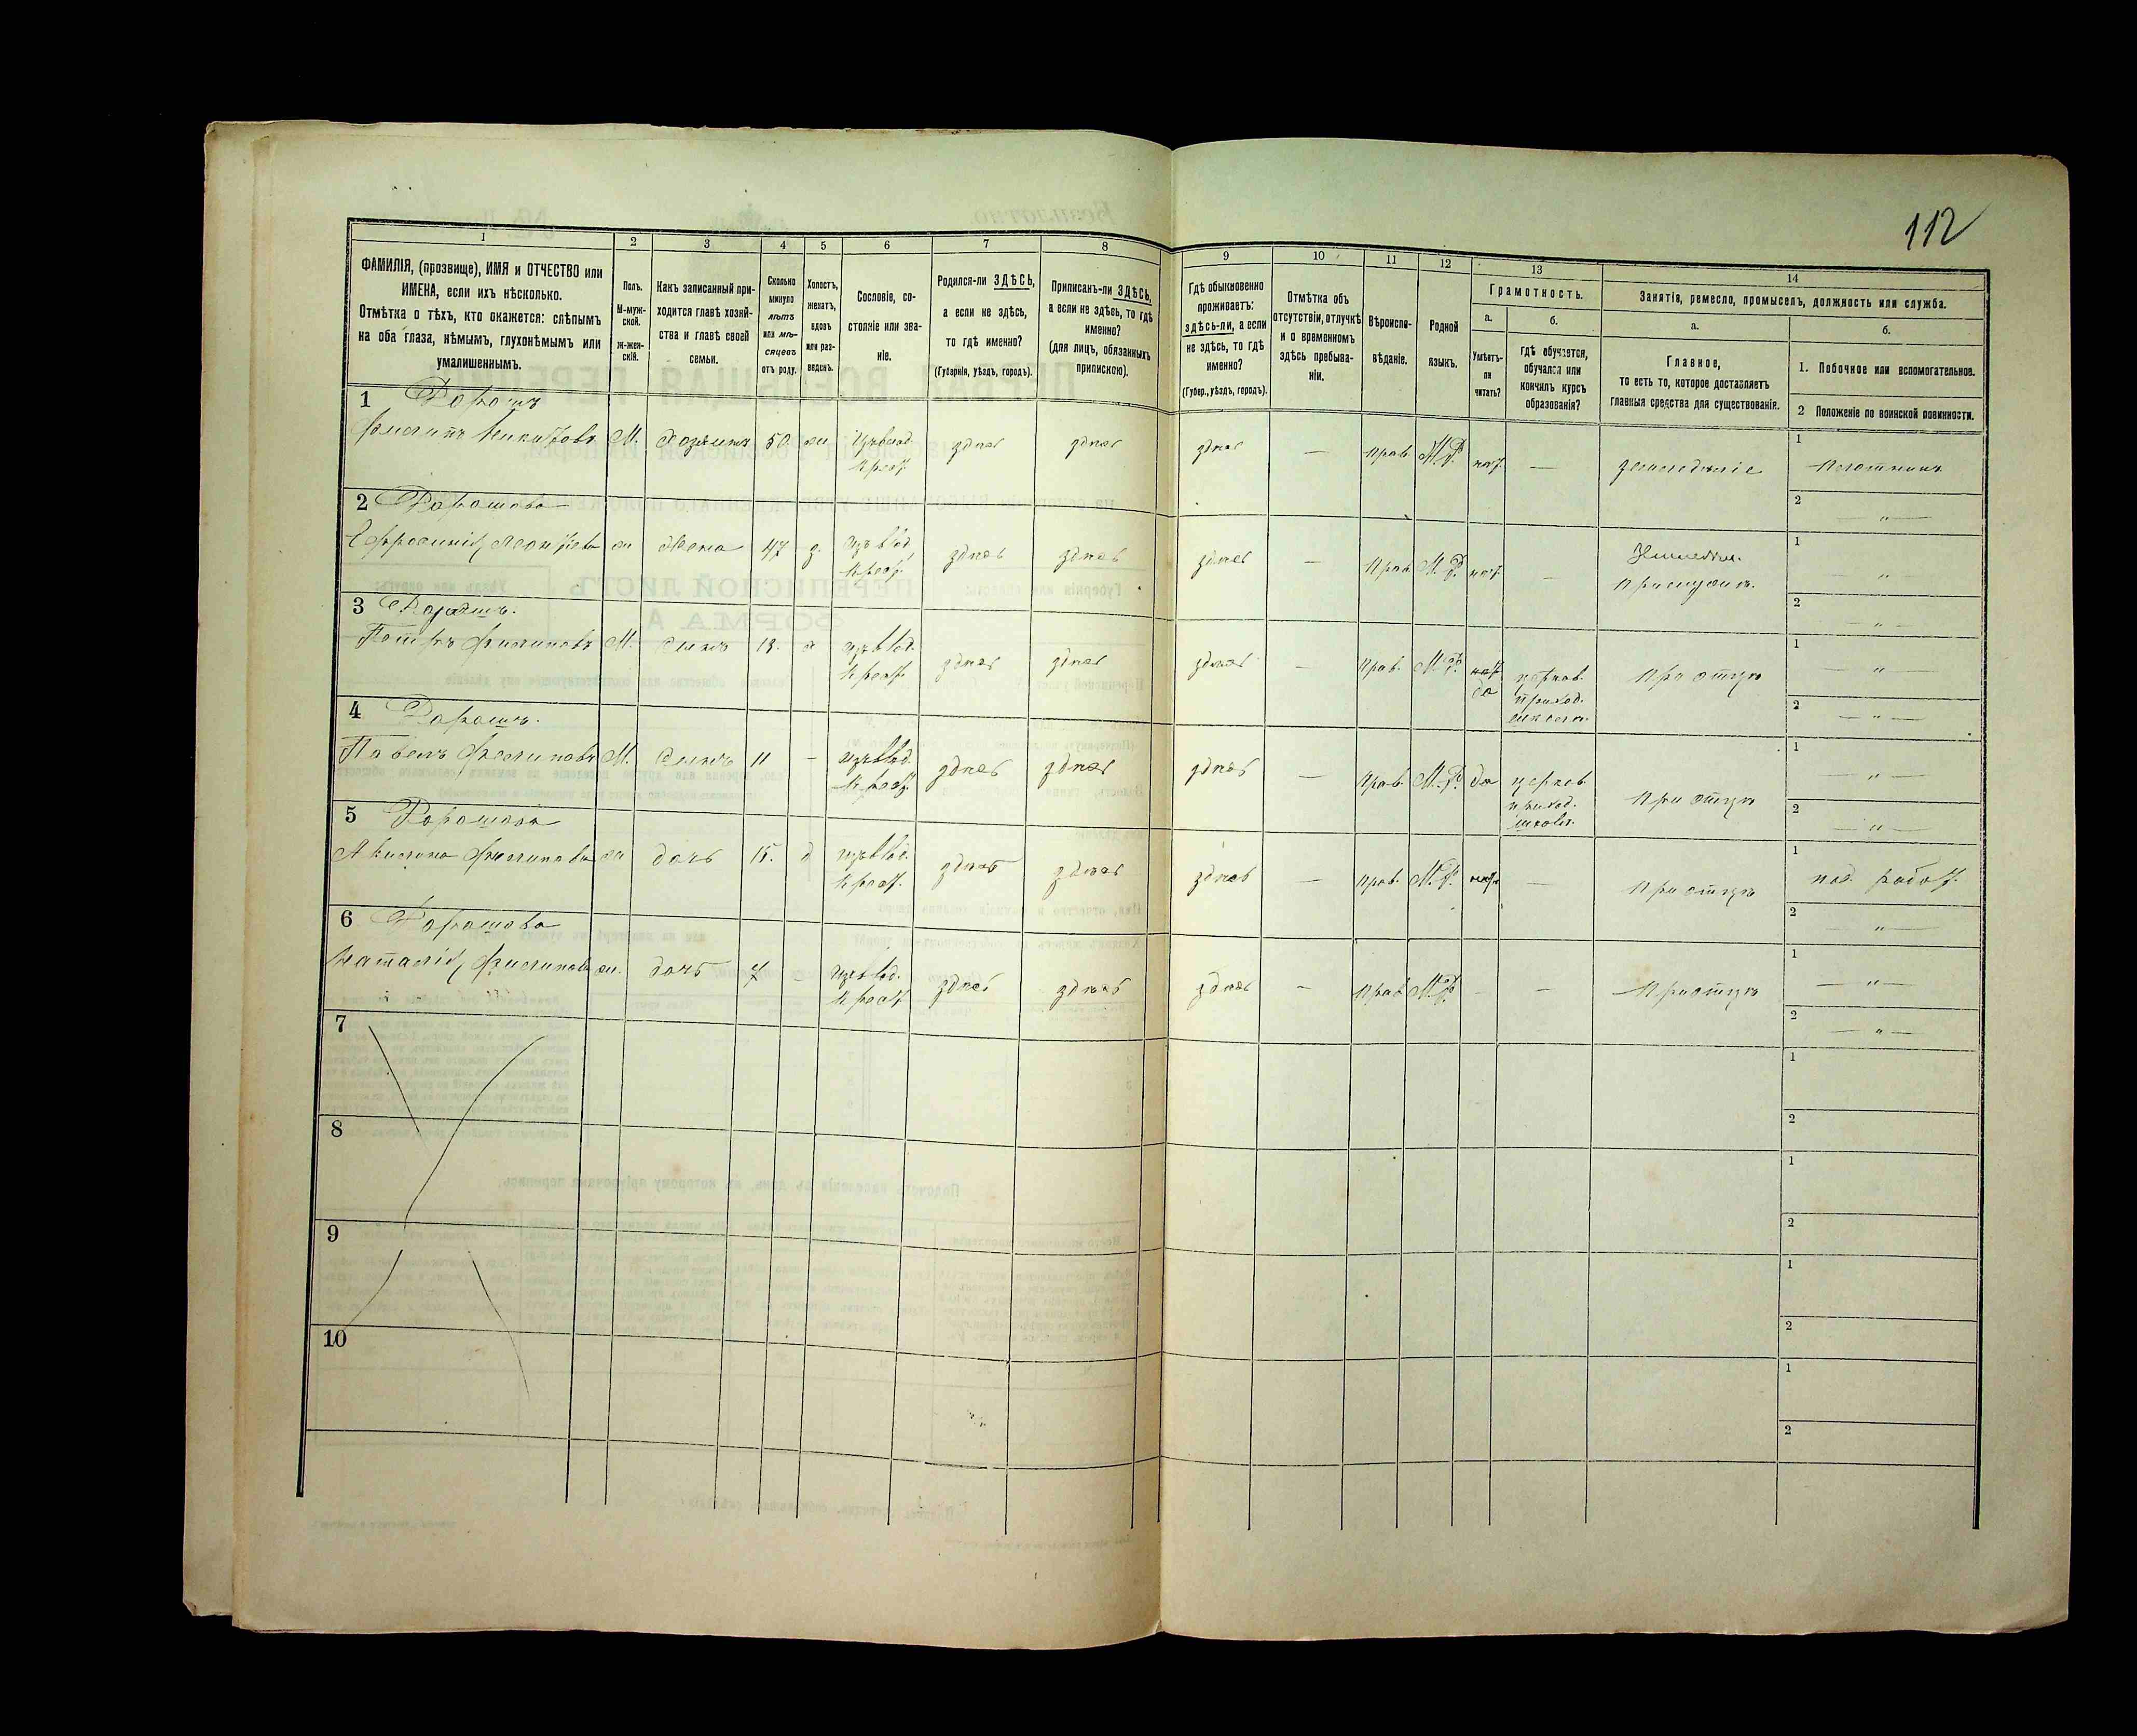 112
1
2
3
4
5
6
7
8
9
10
11
12
13
14
ФАМИЛІЯ, (прозвище), ИМЯ и ОТЧЕСТВО или
ИМЕНА, если ихъ нѣсколько.
Отмѣтка о тѣхъ, кто окажется: слѣпымъ
на оба глаза, нѣмымъ, глухонѣмымъ или
умалишеннымъ.
Полъ.
М-муж-
ской.
Ж-жен-
скій.
Какъ записанный при-
ходится главѣ хозяй-
ства и главѣ своей
семьи.
Сколько
минуло
лѣтъ
или мѣ-
сяцевъ
отъ роду.
Холостъ,
женатъ,
вдовъ
или раз-
веденъ.
Сословіе, со-
стояніе или зва-
ніе.
Родился-ли ЗДѢСЬ,
а если не здѣсь,
то гдѣ именно?
(Губернія, уѣздъ, городъ).
Приписанъ-ли ЗДѢСЬ,
а если не здѣсь, то гдѣ
именно?
(для лицъ, обязанныхъ
припискою).
Гдѣ обыкновенно
проживаетъ:
здѣсь-ли, а если
не здѣсь, то гдѣ
именно?
(Губер., уѣздъ, городъ).
Отмѣтка объ
отсутствіи, отлучкѣ
и о временномъ
здѣсь пребыва-
ніи.
Вѣроиспо-
вѣданіе.
Родной
языкъ.
Грамотность.
а.
Умѣетъ-
ли
читать?
б.
гдѣ обучается,
обучался или
кончилъ курсъ
образованія?
Занятія, ремесло, промыселъ, должность или служба.
а.
Главное,
то есть то, которое доставляетъ
главныя средства для существованія.
б.
1. Побочное или вспомогательное.
2 Положеніе по воинской повинности.
1 Дорошъ
Филипъ М. Хозяинъ 50 ж здѣсь здѣсь здѣсь — прав. М.Р. — земледѣліе 1
2 — " —
2 Дорошова
ж Жена 47 з. здѣсь здѣсь здѣсь — Прав М.Р. — 1 — " —
2 — " —
3 Дорошъ.
Петръ Филиповъ М. Сынъ 13. х здѣсь здѣсь здѣсь — прав. М.Р. да церков. приход. школа. При отцѣ 1 — " —
2 — " —
4 Дорошъ.
Павелъ Филиповъ М. Сынъ 11 — здѣсь здѣсь здѣсь — прав. М.Р. да церков приход. школа. При отцѣ 1 — " —
2 — " —
5 Дорошова
Акилина Филипова ж дочь 15. д здѣсь здѣсь здѣсь — прав. М.Р. — При отцѣ 1
2 — " —
6 Дорошова
Наталія Филипова ж. дочь 7 — здѣсь здѣсь здѣсь — прав М.Р. - — При отцѣ 1 — " —
2 — " —
7 1
2
8 1
2
9 1
2
10 1
2